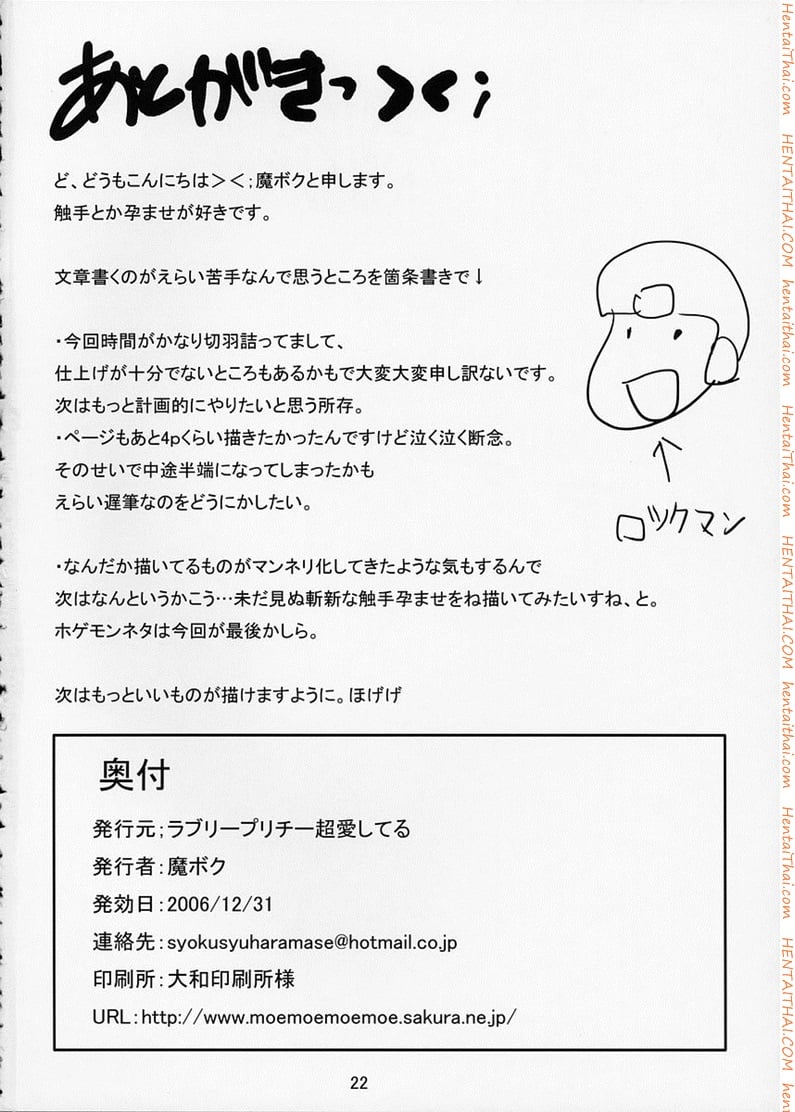 あとがきっ＞＜；
ど、どうもこんにちは＞＜；魔ボクと申します。
触手とか孕ませが好きです。
文章書くのがえらい苦手なんで思うところを箇条書きで↓
・今回時間がかなり切羽詰ってまして、
仕上げが十分でないところもあるかもで大変大変申し訳ないです。
次はもっと計画的にやりたいと思う所存。
・ページもあと4pくらい描きたかったんですけど泣く泣く断念。
そのせいで中途半端になってしまったかも
えらい遅筆なのをどうにかしたい。
・なんだか描いてるものがマンネリ化してきたような気もするんで
次はなんというかこう…未だ見ぬ斬新な触手孕ませをね描いてみたいすね、と。
ホゲモンネタは今回が最後かしら。
次はもっといいものが描けますように。ほげげ
ロックマン
奥付
発行元；ラブリープリチー超愛してる
発行者：魔ボク
発効日：2006/12/31
連絡先：syokusyuharamase@hotmail.co.jp
印刷所：大和印刷所様
URL：http://www.moemoemoemoe.sakura.ne.jp/
22
HentaiThai.com HENTAITHAI.COM hentaithai.com HentaiThai.com HENTAITHAI.COM hentaithai.com HentaiThai.com HENTAITHAI.COM hent